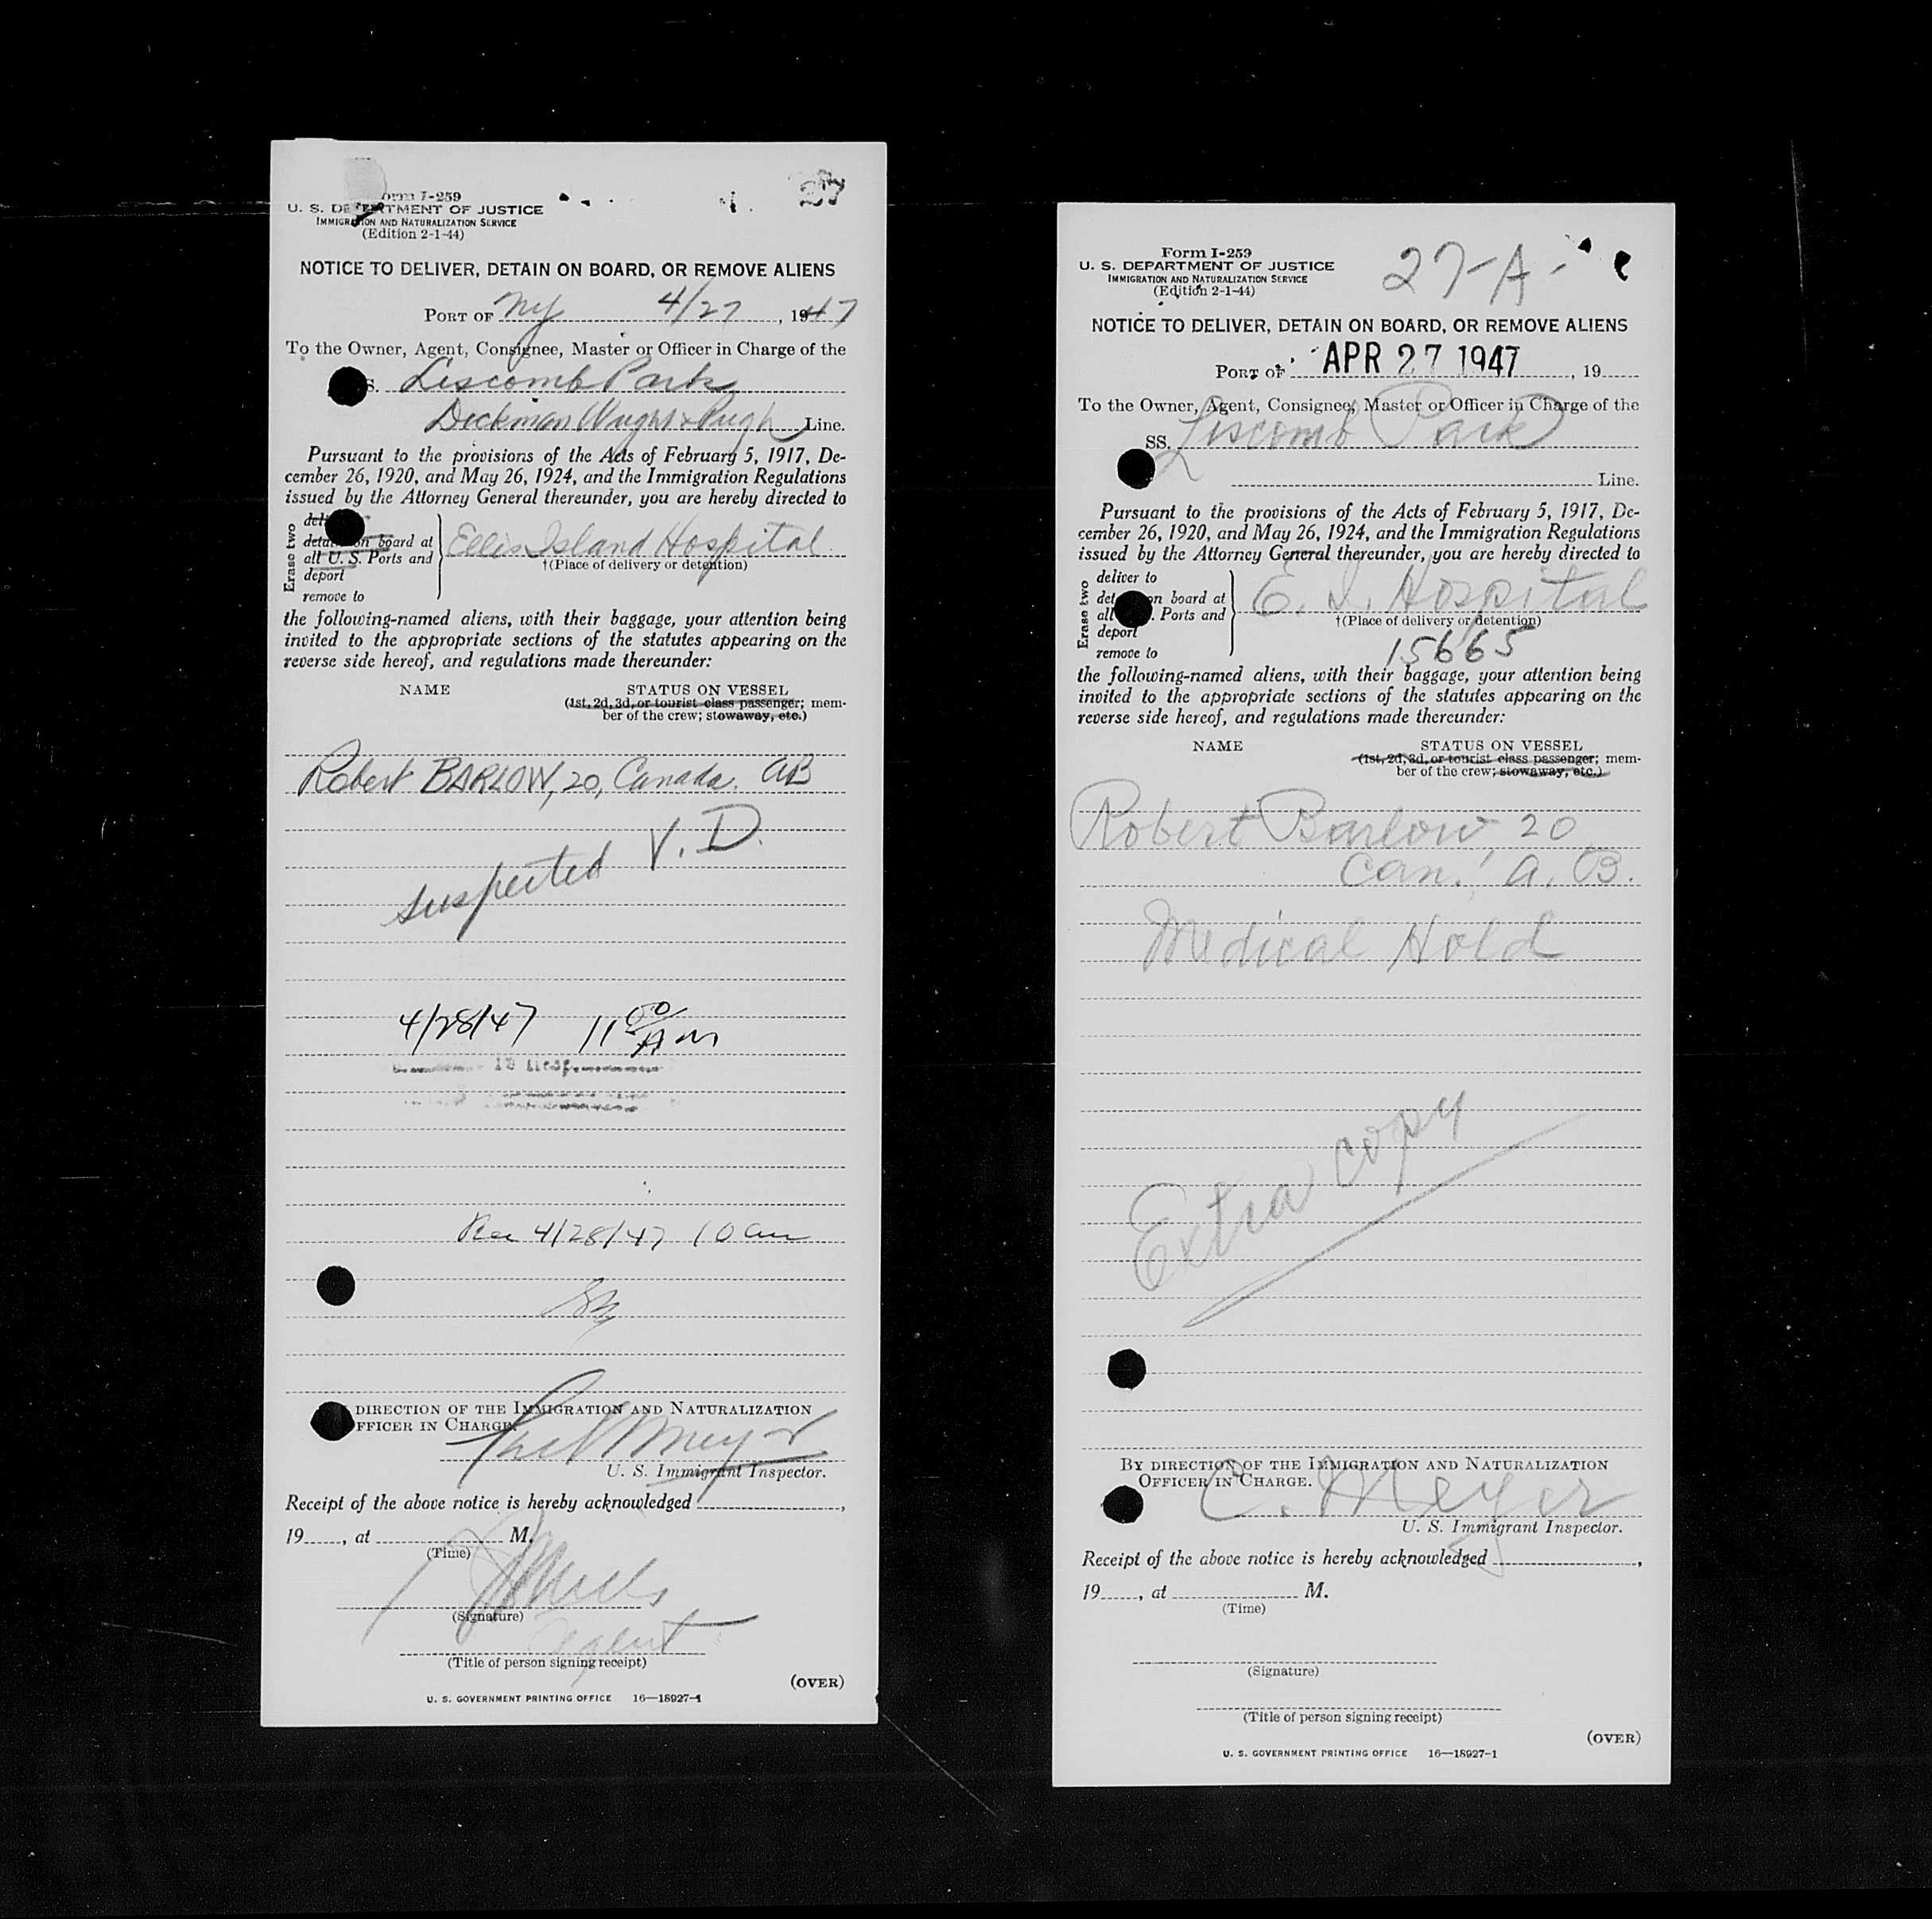 Form I-259
27
U. S. DEPARTMENT OF JUSTICE
IMMIGRATION AND NATURALIZATION SERVICE
(Edition 2-1-44)
NOTICE TO DELIVER, DETAIN ON BOARD, OR REMOVE ALIENS
PORT OF NY 4/27, 1947
To the Owner, Agent, Consignee, Master or Officer in Charge of the
S. Liscomb Park
Dickman Wright & Pugh Line.
Pursuant to the provisions of the Acts of February 5, 1917, De-
cember 26, 1920, and May 26, 1924, and the Immigration Regulations
issued by the Attorney General thereunder, you are hereby directed to
Erase two
detain on board at
all U. S. Ports and
deport
remove to
Ellis Island Hospital
†(Place of delivery or detention)
the following-named aliens, with their baggage, your attention being
invited to the appropriate sections of the statutes appearing on the
reverse side hereof, and regulations made thereunder:
NAME STATUS ON VESSEL
(1st, 2d, 3d, or tourist class passenger; mem-
ber of the crew; stowaway, etc.)
Robert BARLOW, 20, Canada. AB
suspected V. D.
4/28/47 11 00 AM
Rec 4/28/47 10 am
DIRECTION OF THE IMMIGRATION AND NATURALIZATION
OFFICER IN CHARGE.
Meyer
U. S. Immigrant Inspector.
Receipt of the above notice is hereby acknowledged ,
19 , at M.
(Time)
(Signature)
agent
(Title of person signing receipt)
(OVER)
U. S. GOVERNMENT PRINTING OFFICE 16—18927-1
Form I-259
27-A-
U. S. DEPARTMENT OF JUSTICE
IMMIGRATION AND NATURALIZATION SERVICE
(Edition 2-1-44)
NOTICE TO DELIVER, DETAIN ON BOARD, OR REMOVE ALIENS
PORT OF APR 27 1947, 19
To the Owner, Agent, Consignee, Master or Officer in Charge of the
SS. Liscomb Park
Line.
Pursuant to the provisions of the Acts of February 5, 1917, De-
cember 26, 1920, and May 26, 1924, and the Immigration Regulations
issued by the Attorney General thereunder, you are hereby directed to
Erase two
deliver to
detain on board at
all Ports and
deport
remove to
E. I. Hospital
†(Place of delivery or detention)
15665
the following-named aliens, with their baggage, your attention being
invited to the appropriate sections of the statutes appearing on the
reverse side hereof, and regulations made thereunder:
NAME STATUS ON VESSEL
(1st, 2d, 3d, or tourist class passenger; mem-
ber of the crew; stowaway, etc.)
Robert Barlow, 20
Can. A. B.
Medical Hold
Extra copy
BY DIRECTION OF THE IMMIGRATION AND NATURALIZATION
OFFICER IN CHARGE.
C. Meyer
U. S. Immigrant Inspector.
Receipt of the above notice is hereby acknowledged ,
19 , at M.
(Time)
(Signature)
(Title of person signing receipt)
(OVER)
U. S. GOVERNMENT PRINTING OFFICE 16—18927-1